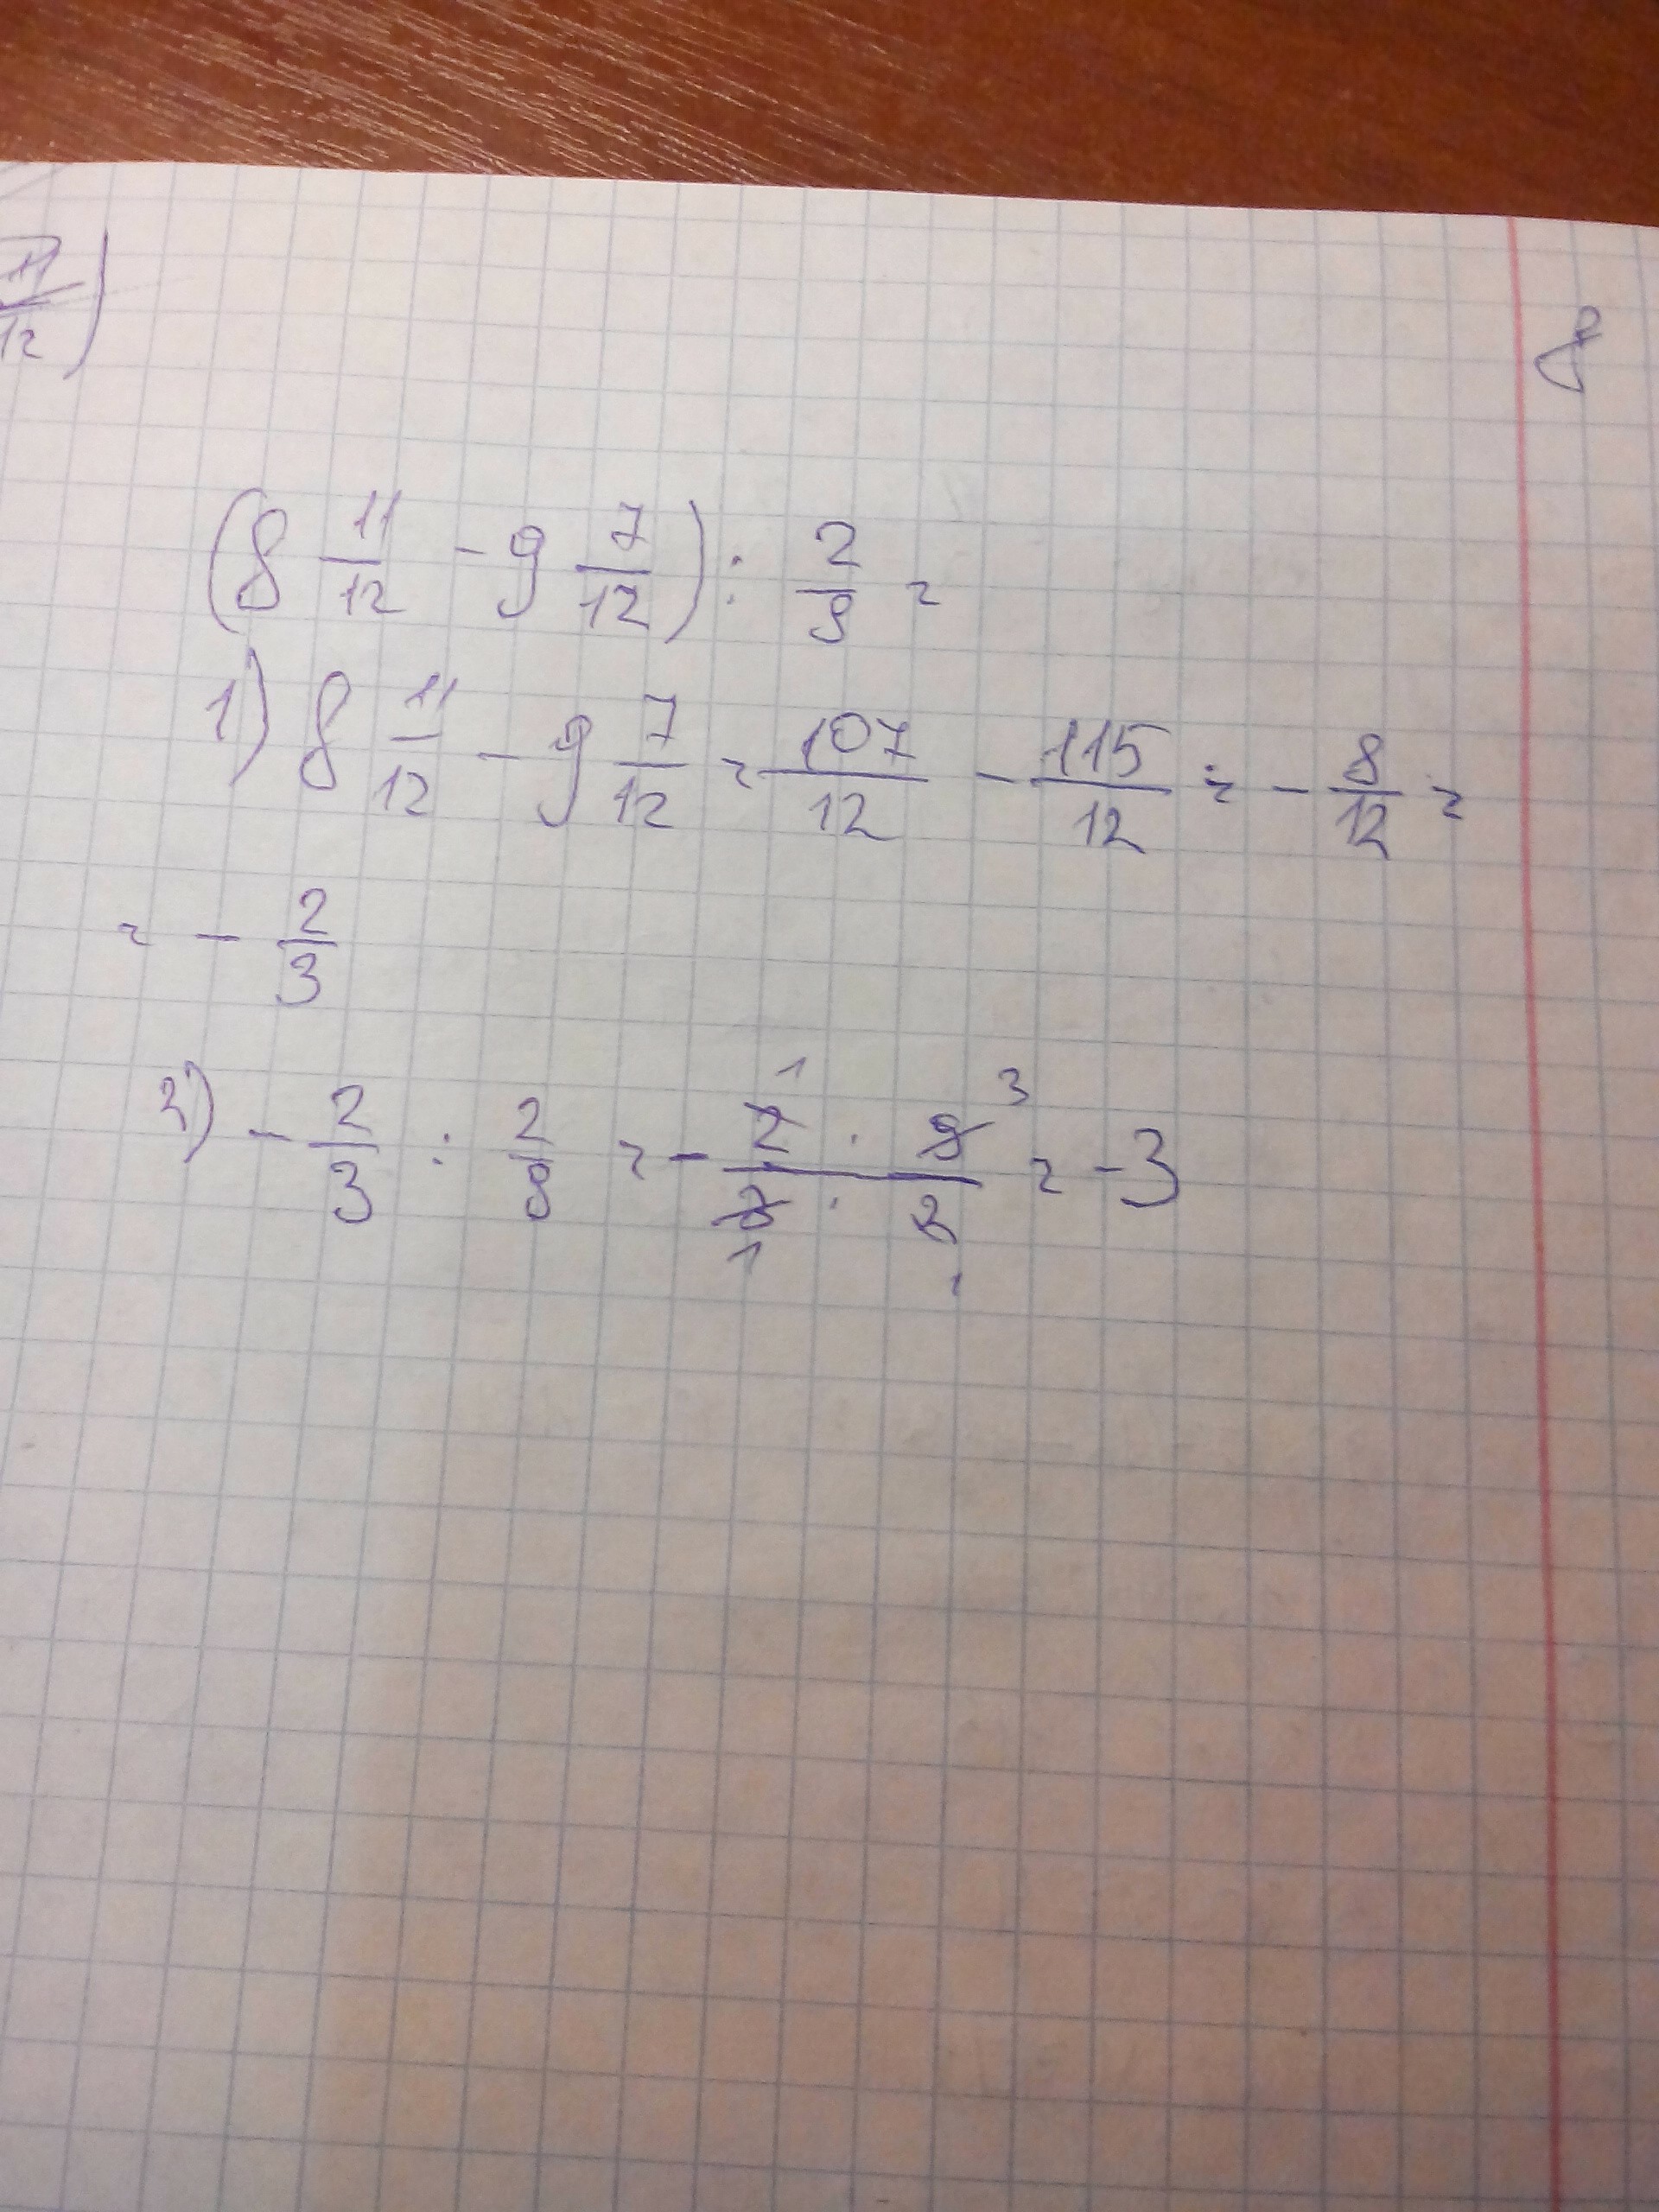 11/12)
8
(8 11/12 - 9 7/12) : 2/9 =
1) 8 11/12 - 9 7/12 = 107/12 - 115/12 = - 8/12 =
= - 2/3
2) - 2/3 : 2/9 = - 2 1 · 9 3 / 3 1 · 2 1 = -3